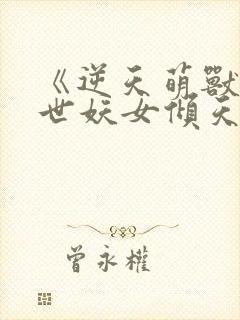 《逆天萌獸
世妖女傾天
曾永權